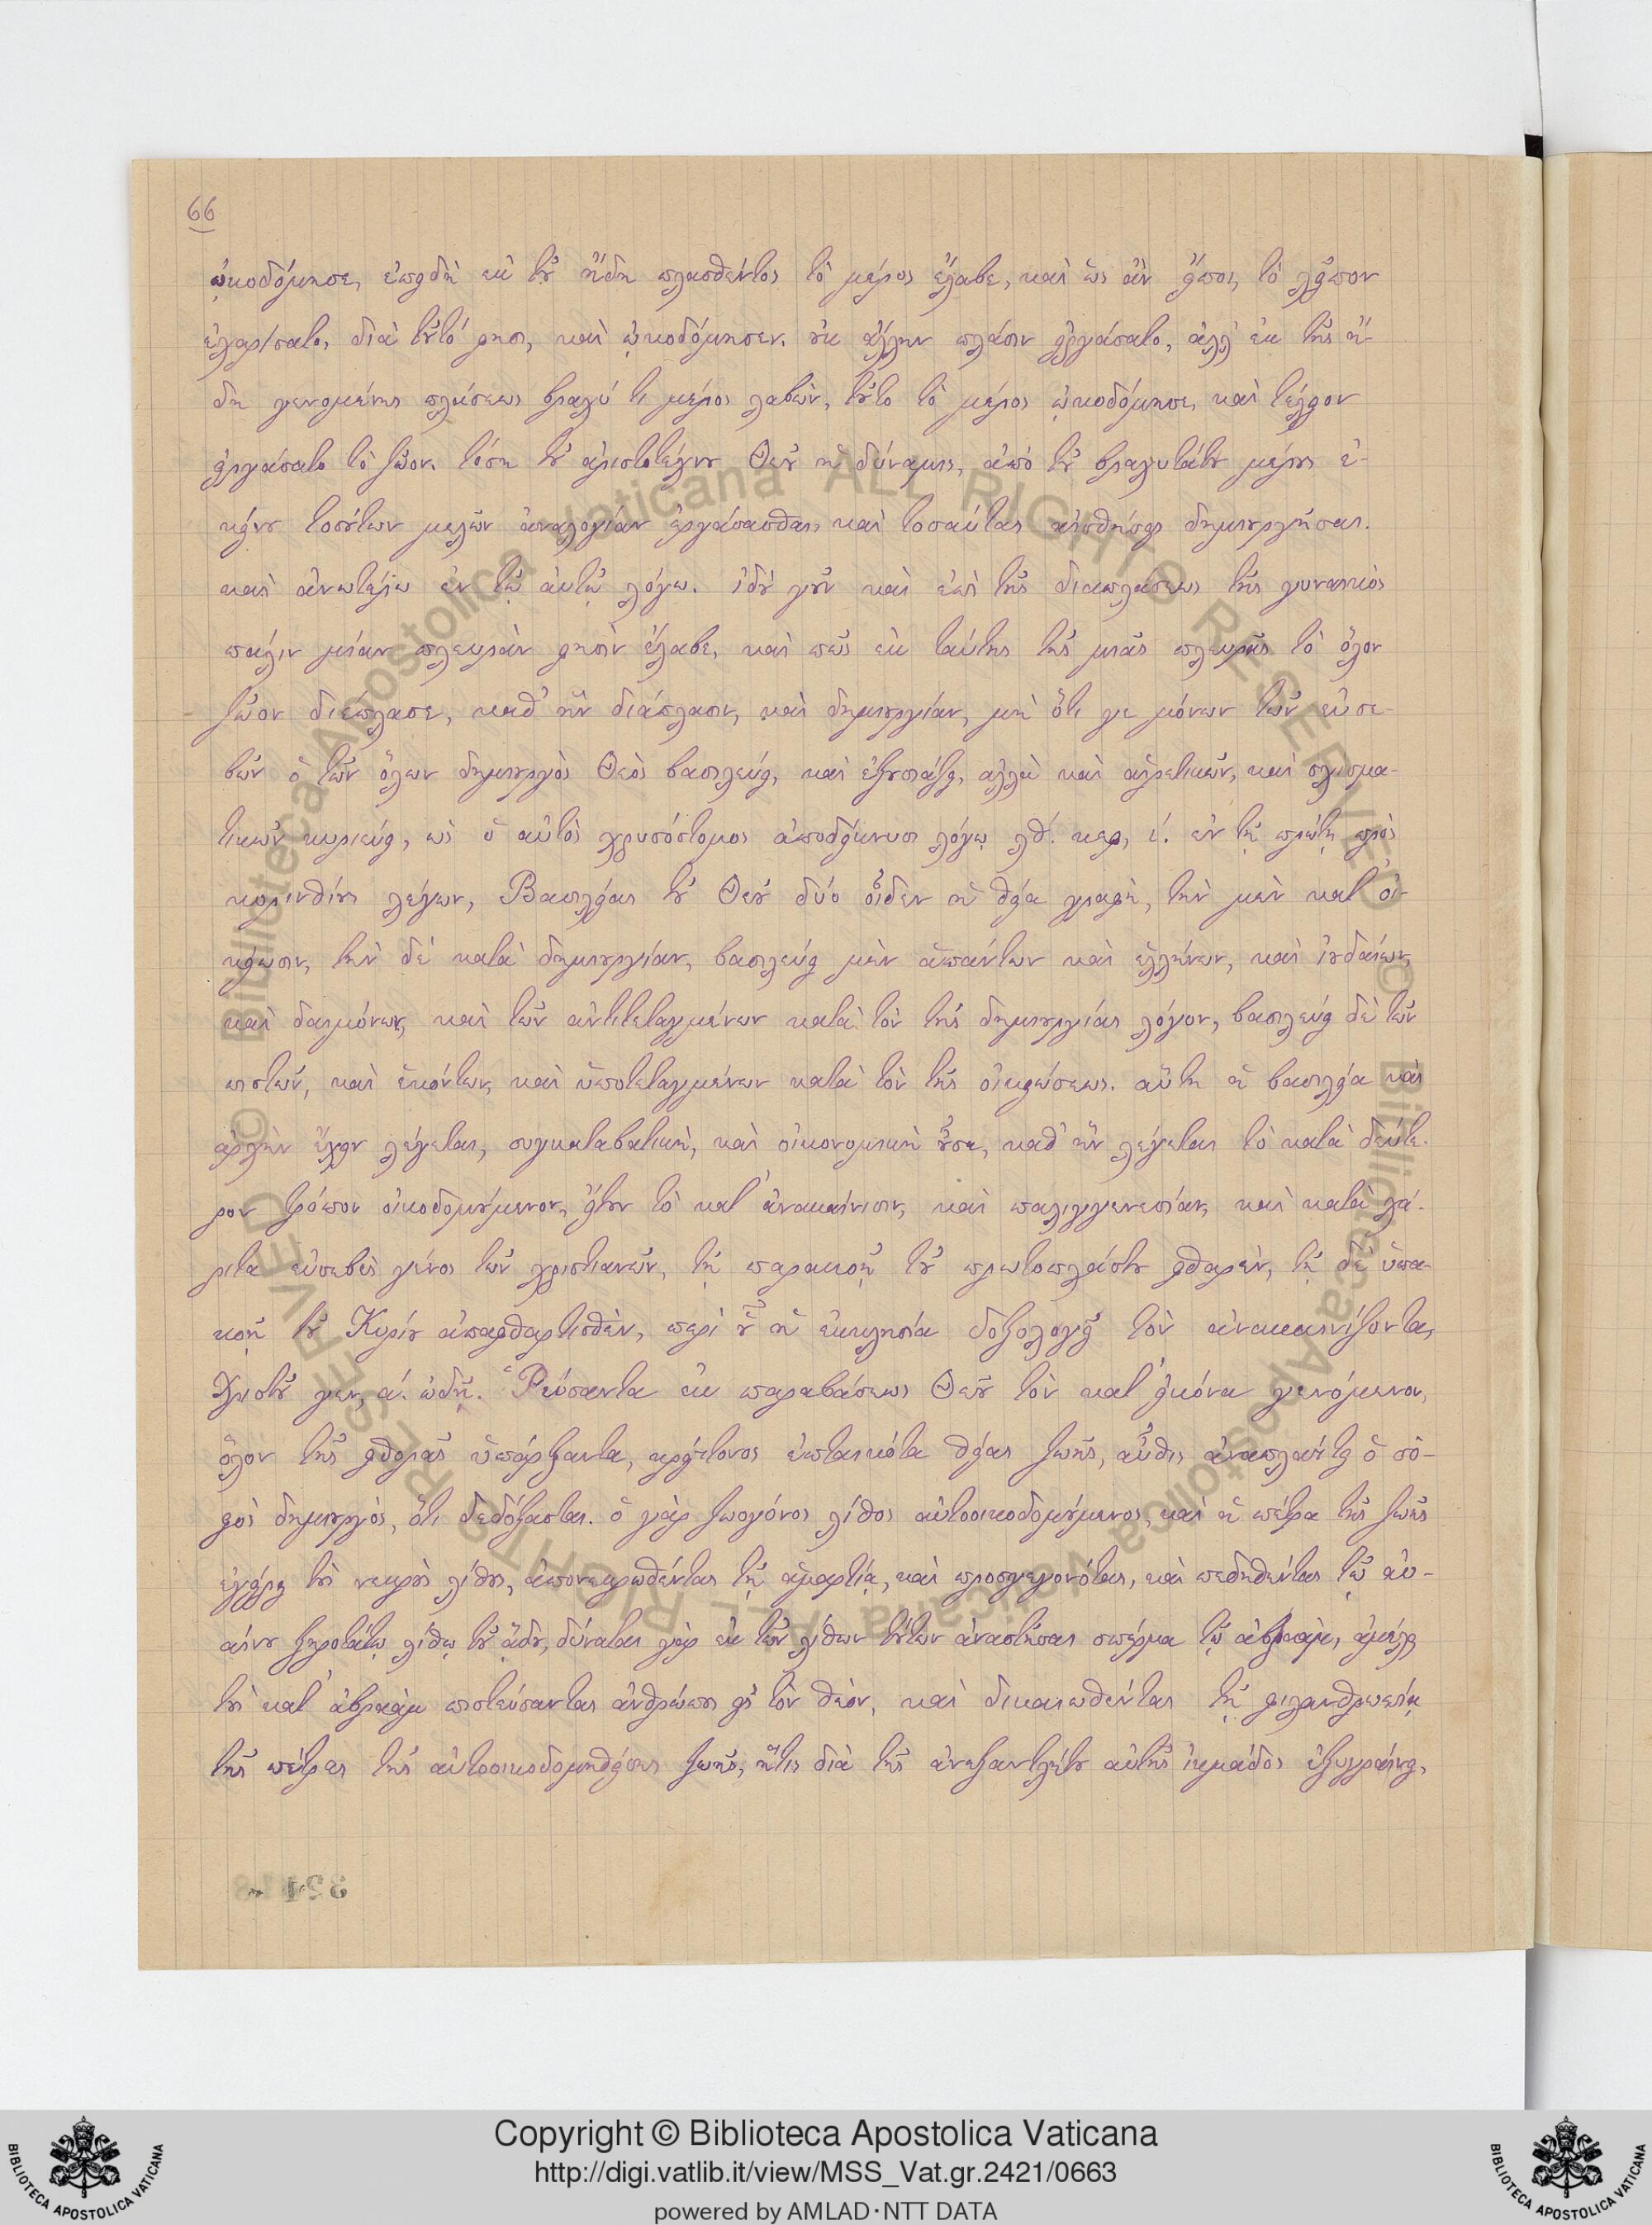 66
ᾠκοδόμησε, ἐπειδὴ ἐκ τοῦ ἤδη πλασθέντος τὸ μέρος ἔλαβε, καὶ ὡς ἂν εἴποι, τὸ λεῖπον
ἐχαρίσατο, διὰ τοῦτό φησι, καὶ ᾠκοδόμησεν. οὐκ ἄλλην πλάσιν εἰργάσατο, ἀλλ' ἐκ τῆς ἤ-
δη γενομένης πλάσεως βραχύ τι μέρος λαβὼν, τοῦτο τὸ μέρος ᾠκοδόμησε, καὶ τέλειον
εἰργάσατο τὸ ζῶον. τόση τοῦ ἀριστοτέχνου Θεοῦ ἡ δύναμις, ἀπὸ τοῦ βραχυτάτου μέρους ἐ-
κείνου τοσούτων μελῶν ἀναλογίαν ἐργάσασθαι, καὶ τοσαύτας αἰσθήσεις δημιουργῆσαι.
καὶ ἀνωτέρω ἐν τῷ αὐτῷ λόγω. ἰδοὺ γοῦν καὶ ἐπὶ τῆς διαπλάσεως τῆς γυναικὸς
πάλιν μίαν πλευρὰν φησὶν ἔλαβε, καὶ πῶς ἐκ ταύτης τῆς μιᾶς πλευρᾶς τὸ ὅλον
ζῶον διέπλασε, καθ' ἣν διάπλασιν, καὶ δημιουργίαν, μὴ ὅτι γε μόνων τῶν εὐσε-
βῶν ὁ τῶν ὅλων δημιουργὸς Θεὸς βασιλεύει, καὶ ἐξουσιάζει, ἀλλὰ καὶ αἱρετικῶν, καὶ σχισμα-
τικῶν κυριεύει, ὡς ὁ αὐτὸς χρυσόστομος ἀποδείκνυσι λόγῳ λθ'. κεφ, ϛ'. ἐν τῇ πρώτῃ πρὸς
κορινθίους λέγων, Βασιλείας τοῦ Θεοῦ δύο οἶδεν ἡ θεία γραφὴ, τὴν μὲν κατ' οἰ-
κείωσιν, τὴν δὲ κατὰ δημιουργίαν, βασιλεύει μὲν ἁπάντων καὶ ἑλλήνων, καὶ ἰουδαίων,
καὶ δαιμόνων, καὶ τῶν ἀντιτεταγμένων κατὰ τὸν τῆς δημιουργίας λόγον, βασιλεύει δὲ τῶν
πιστῶν, καὶ ἑκόντων, καὶ ὑποτεταγμένων κατὰ τὸν τῆς οἰκειώσεως. αὕτη ἡ βασιλεία καὶ
ἀρχὴν ἔχειν λέγεται, συγκαταβατικὴ, καὶ οἰκονομικὴ οὖσα, καθ' ἣν λέγεται τὸ κατὰ δεύτε-
ρον τρόπον οἰκοδομούμενον, ἤτουν τὸ κατ' ἀνακαίνισιν, καὶ παλιγγενεσίαν, καὶ κατὰ χά-
ριτα εὐσεβὲς γένος τῶν χριστιανῶν, τῇ παρακοῇ τοῦ πρωτοπλάστου φθαρὲν, τῇ δὲ ὑπα-
κοῇ τοῦ Κυρίου ἀπαφθαρτισθὲν, περὶ οὗ ἡ ἐκκλησία δοξολογεῖ τὸν ἀνακαινίζοντα,
Χριστοῦ γεν, α'. ᾠδῇ. Ῥεύσαντα ἐκ παραβάσεως Θεοῦ τὸν κατ' εἰκόνα γενόμενον,
ὅλον τῆς φθορᾶς ὑπάρξαντα, κρείττονος ἐπταικότα θείας ζωῆς, αὖθις ἀναπλάττει ὁ σο-
φὸς δημιουργὸς, ὅτι δεδόξασται. ὁ γὰρ ζωογόνος λίθος αὐτοοικοδομούμενος, καὶ ἡ πέτρα τῆς ζωῆς
ἐγείρει τοὺς νεκροὺς λίθους, ἀπονεκρωθέντας τῇ ἁμαρτίᾳ, καὶ προσγεγονότας, καὶ πεδηθέντας τῷ
ξηροτάτῳ λίθῳ τοῦ ᾅδου, δύναται γὰρ ἐκ τῶν λίθων τούτων ἀναστῆσαι σπέρμα τῷ ἀβραὰμ, ἀμέλει
τοὺς κατ' ἀβραὰμ πιστεύσαντας ἀνθρώπους εἰς τὸν θεὸν, καὶ δικαιωθέντας τῇ φιλανθρωπίᾳ
τῆς πέτρας τῆς αὐτοοικοδομηθείσης ζωῆς, ἥτις διὰ τῆς ἀνεξαντλήτου αὐτῆς ἰκμάδος ἐξυγραίνει,
Copyright © Biblioteca Apostolica Vaticana
http://digi.vatlib.it/view/MSS_Vat.gr.2421/0663
powered by AMLAD·NTT DATA